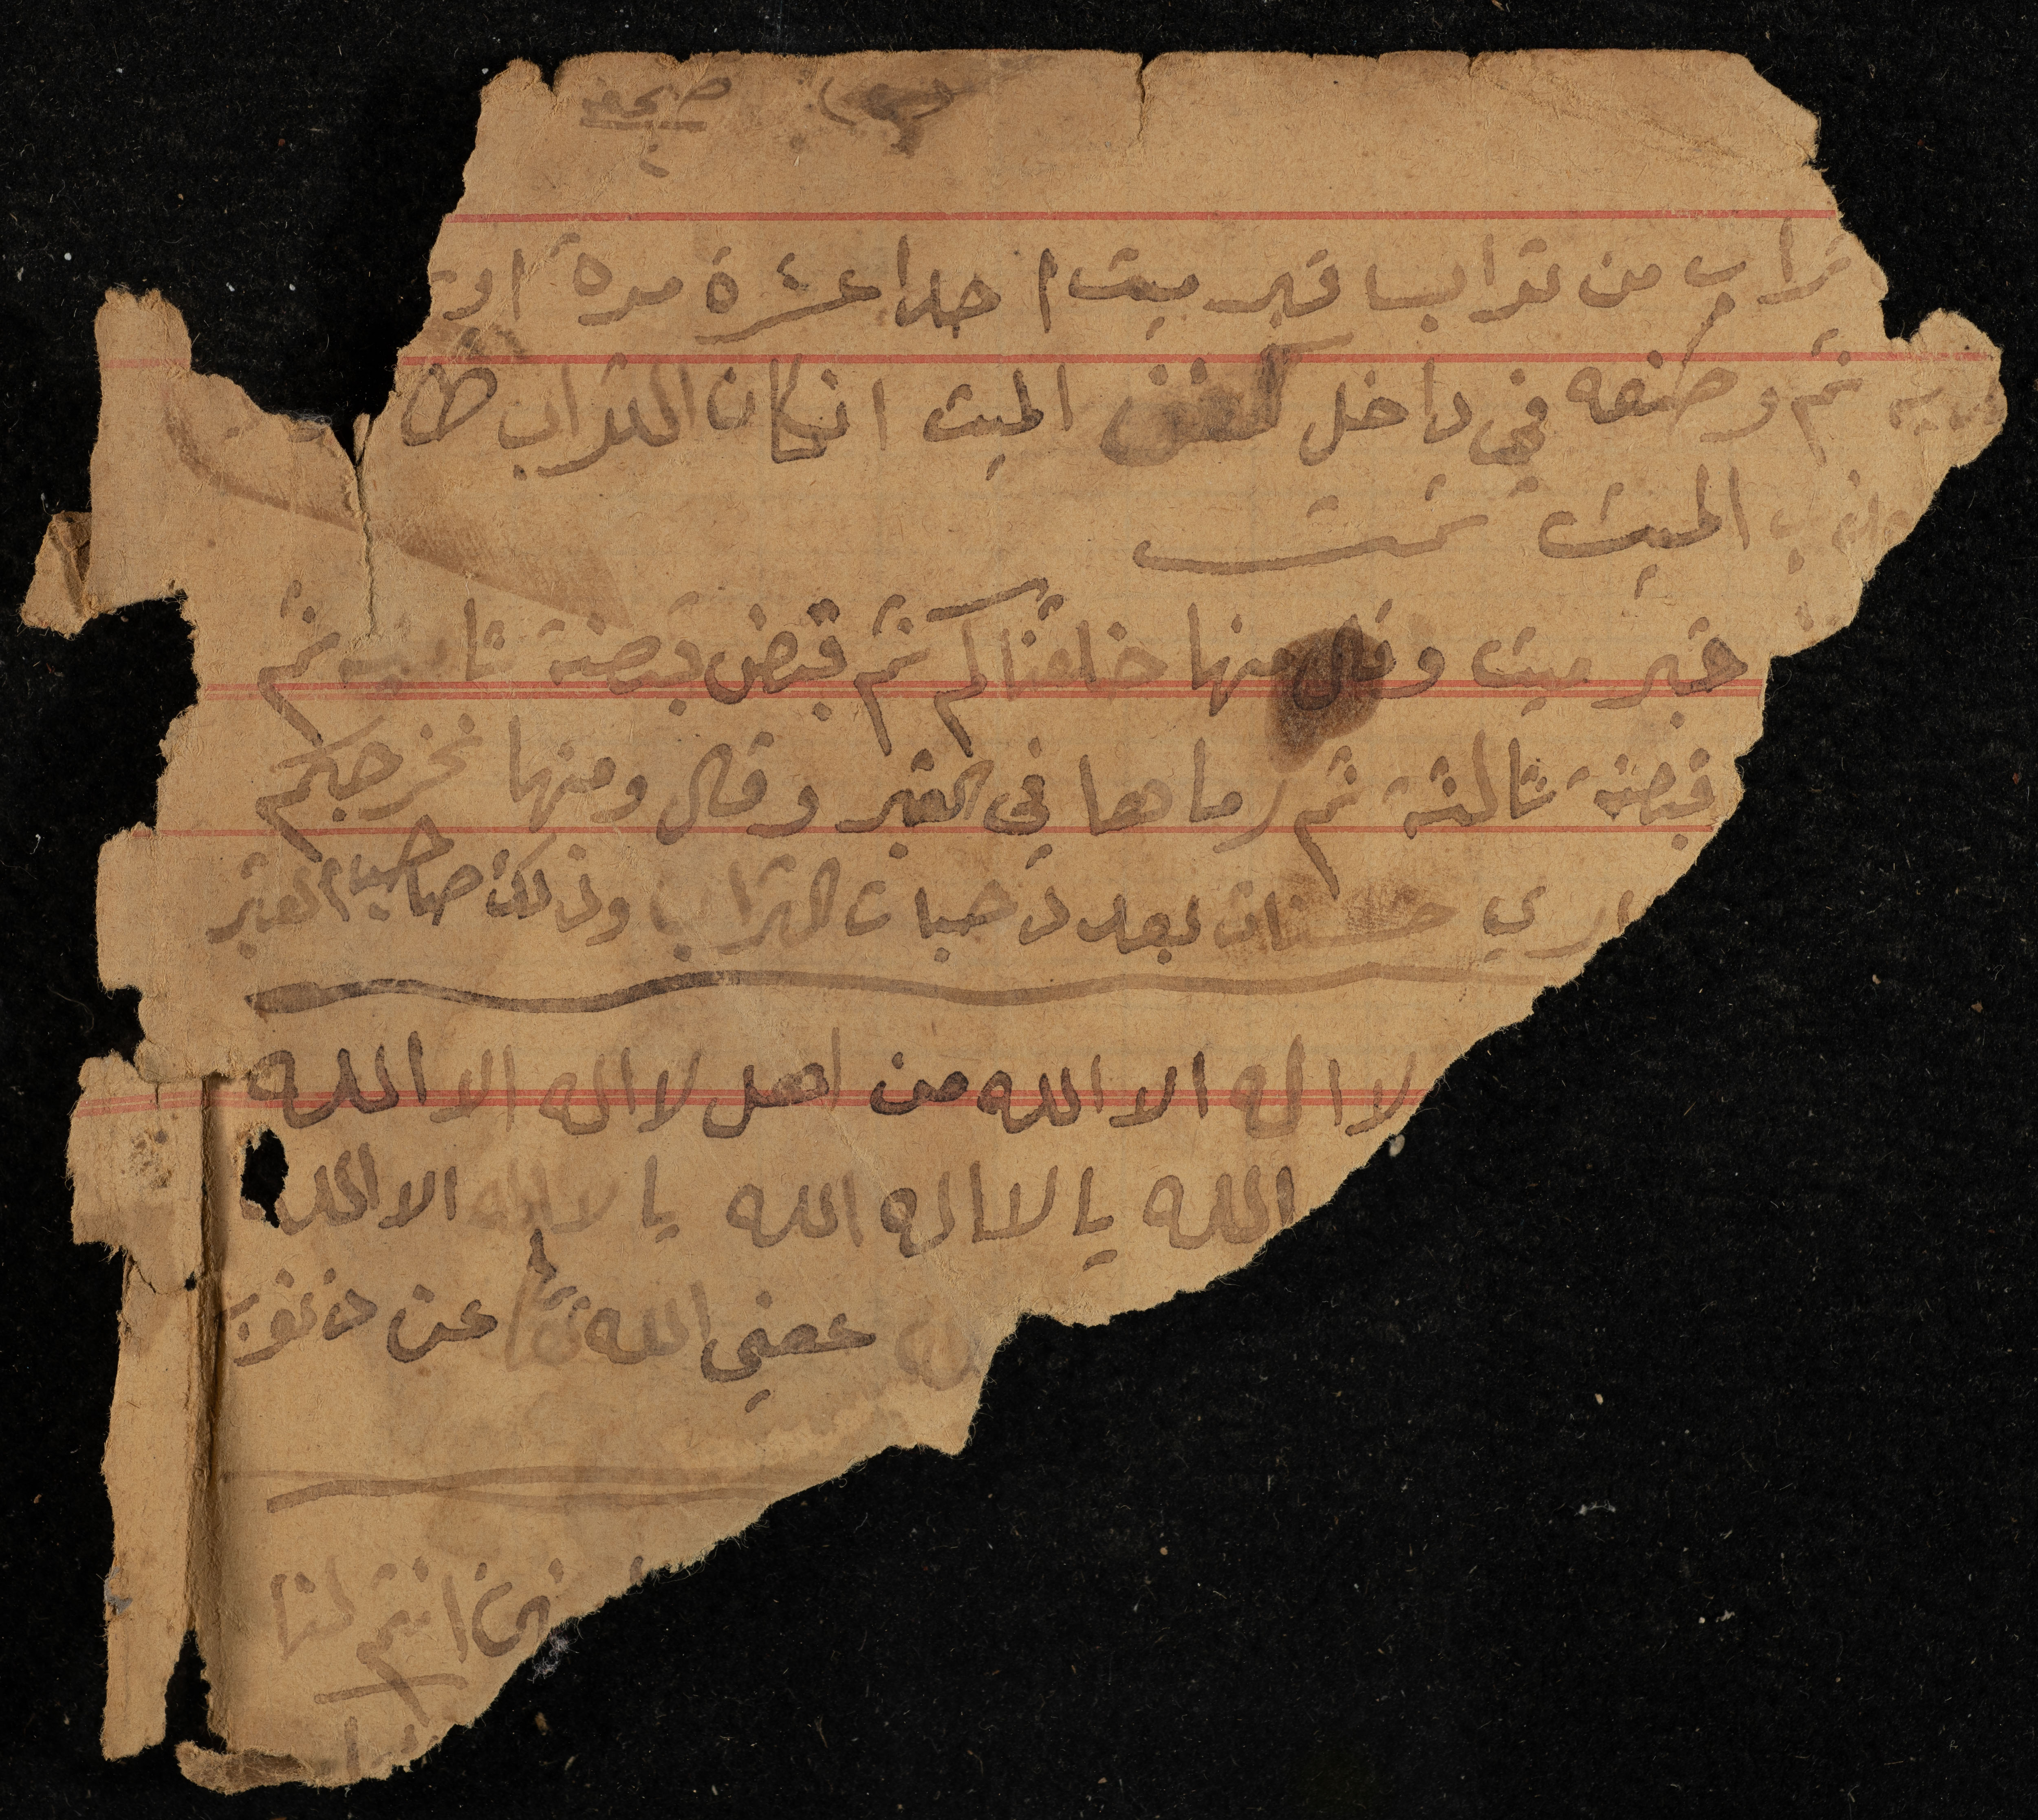 صحفه
تراب من تراب قبر ميت احدا عشرة مرة او
ثم وضعه في داخل كفن الميت انكان التراب طا
الميت تمت
قبر ميت وقال منها خلقناكم ثم قبض قبضة ثانيه ثم
قبضة ثالثة ثم رماها في القبر وقال ومنها نخرجكم
حسنات بعدد حبات التراب وذلك صاحب القبر
لا اله الا الله من اهل لا اله الا الله
الله يا لا اله الله يا لا اله الا الله
عفي الله عن ذنوب
انتم لنا